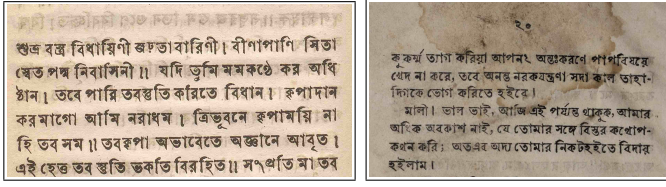 শুভ্র বস্ত্র বিধায়িনী জড়তাবারিণী। বীণাপাণি সিতা
শ্বেত পদ্ম নিবাসিনী॥ যদি তুমি মমকণ্ঠে কর অধি
ষ্ঠান। তবে পারি তবস্তুতি করিতে বিধান। কৃপাদান
কর মাগো আমি নরাধম। ত্রিভূবনে কৃপাময়ি না
হি তব সম॥ তবকৃপা অভাবেতে অজ্ঞানে আবৃত।
এই হেতু তব স্তুতি ভকতি বিরহিত॥ সংপ্রতি মা তব
২০
কুকর্ম্ম ত্যাগ করিয়া আপনং অন্তঃকরণে পাপবিষয়ে
খেদ না করে, তবে অনন্ত নরকযন্ত্রণা সদা কাল তাহা-
দিগকে ভোগ করিতে হইবে।
মালী। ভাল ভাই, আজি এই পর্য্যন্ত থাকুক, আমার
অধিক অবকাশ নাই, যে তোমার সঙ্গে বিস্তর কথোপ-
কথন করি; অতএব অদ্য তোমার নিকটহইতে বিদায়
হইলাম।